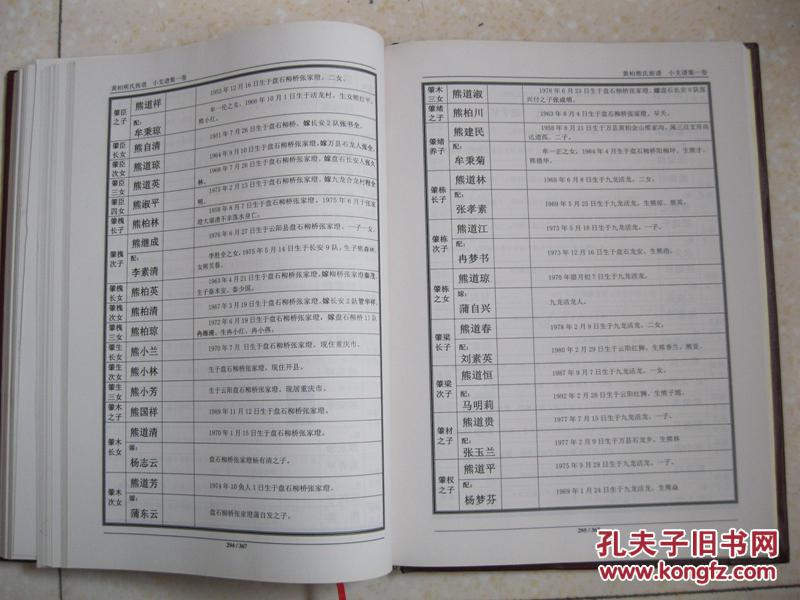 黄柏熊氏族谱 小支谱集一卷
肇臣之子 熊道祥 1953年12月16日生于盘石柳桥张家璒。二女。
配: 牟秉琼 牟一伦之女，1966年10月1日生于活龙村，生女熊红平、熊小红。
肇臣长女 熊自清 1961年7月26日生于盘石柳桥，嫁长安2队张书全。
肇臣次女 熊道琼
肇臣三女 熊道英
肇臣四女 熊淑平
肇槐长子 熊柏林
肇槐次子 熊继成 1976年6月27日生于云阳县盘石柳桥张家璒，一子一女。
配: 李素清 李胜全之女，1975年5月14日生于长安9队，生子熊森林、女熊芙蓉。
肇槐长女 熊柏英 1963年4月21日生于盘石柳桥张家璒，嫁柳桥张家璒秦茂，生子秦木安、秦少国。
肇槐次女 熊柏清 1967年3月19日生于盘石柳桥张家璒，嫁长安2队管华祥。
肇槐三女 熊柏琼 1972年6月19日生于盘石柳桥张家璒，嫁盘石柳桥11队冉海港，生冉小红、冉小燕。
肇生长女 熊小兰 1970年7月 日生于盘石柳桥张家璒，现住重庆市。
肇生次女 熊小林 生于盘石柳桥张家璒，现住开县。
肇生三女 熊小芳 生于云阳盘石柳桥张家璒，现居重庆市。
肇木之子 熊国祥 1989年11月12日生于盘石柳桥张家璒。
肇木长女 熊道清 1970年1月15日生于盘石柳桥张家璒。
嫁: 杨志云 盘石柳桥张家璒杨有清之子。
肇木次女 熊道芳 1974年10月1日生于盘石柳桥张家璒。
嫁: 蒲东云 盘石柳桥张家璒蒲自发之子。
294 / 367
黄柏熊氏族谱 小支谱集一卷
肇木三女 熊道淑 1978年6月23日生于盘石柳桥张家璒，嫁盘石长安9队张兴付之子张成明。
肇绪之子 熊柏川 1963年8月4日生于盘石柳桥张家璒，早夭。
肇绪养子 熊建民
配: 牟秉菊 牟一正之女，1964年4月生于盘石柳桥阳梅坪，生熊才、熊德华。
肇栋长子 熊道林 1968年6月8日生于九龙活龙，二女。
配: 张孝素 1968年2月8日生于九龙活龙，生熊琼、熊英。
肇栋次子 熊道江 1973年5月18日生于九龙活龙，一子。
配: 冉梦书 1973年12月16日生于盘石龙安，生熊浩。
肇栋之女 熊道琼 1970年腊月初7日生于九龙活龙。
嫁: 蒲自兴 九龙活龙人。
肇梁长子 熊道春 1978年2月9日生于九龙活龙，二女。
配: 刘素英 1980年2月29日生于云阳红狮，生熊春兰、熊棠。
肇梁次子 熊道恒 1987年9月7日生于九龙活龙，一女。
配: 马明莉 1992年2月28日生于云阳红狮，生熊子嫣。
肇材之子 熊道贵 1977年7月15日生于九龙活龙，一子。
配: 张玉兰 1977年2月9日生于万县石龙乡，生熊林
肇权之子 熊道平 1975年9月28日生于九龙活龙，一子。
配: 杨梦芬 1969年1月24日生于九龙活龙，生熊焱
295 / 367
孔夫子旧书网
www.kongfz.com